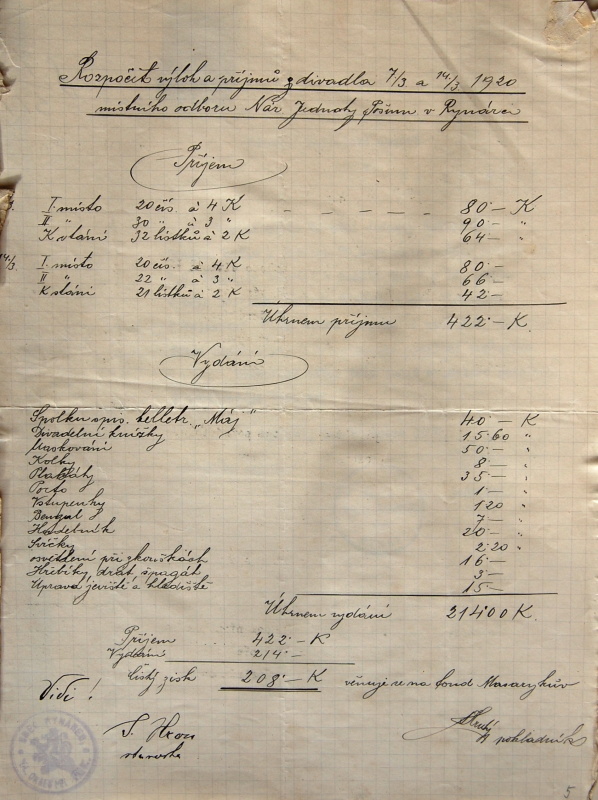 Rozpočet výloh a příjmů z divadla 7/3 a 14./3. 1920
místního odboru Nár Jednoty Pošum v Rynárci
Příjem
I. místo 20 čís. á 4 K - - - - - 80·- K
II " 30 " á 3 " 90·- "
K stání 32 lístků á 2 K 64- "
14/3. I. místo 20 čís. á 4 K 80·-
II " 22 " á 3 " 66-
K stání 21 lístků á 2 K 42-
Úhrnem příjmu 422·- K.
Vydání
Spolku spis. belletr. „Máj" 40·- K
Divadelní knížky 15·60 "
Maskování 50·- "
Kolky 8- "
Plakáty 35- "
Porto 1·- "
Vstupenky 1 20 "
Bengal 7- "
Hudebník 20·- "
Svíčky 2·20 "
osvětlení při zkouškách 16-
Hřebíky, drát, špagát 3-
Úprava jeviště a hlediště 15-
Úhrnem vydání 214 00 K.
Příjem 422·- K
Vydání 214·-
Čistý zisk 208·- K věnuje se na fond Masarykův
Vidi !
starosta
pokladník
5